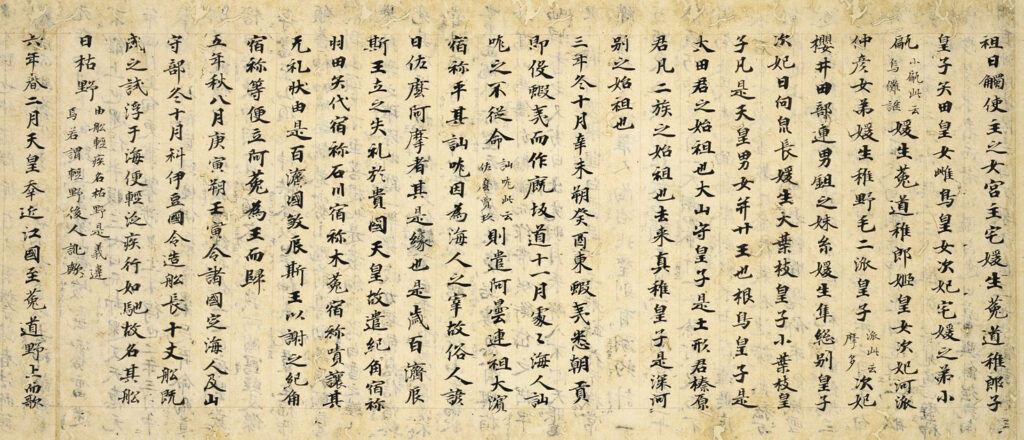 祖日觸使主之女宮主宅媛生菟道稚郎子
皇子矢田皇女雌鳥皇女次妃宅媛之弟小
甂小甂此云烏儺謎媛生菟道稚郎姬皇女次妃河派
仲彦女弟媛生稚野毛二派皇子派此云摩多次妃
櫻井田部連男鉏之妹糸媛生隼総別皇子
次妃日向泉長媛生大葉枝皇子小葉枝皇
子凡是天皇男女并廿王也根鳥皇子是
大田君之始祖也大山守皇子是土形君榛原
君凡二族之始祖也去来真稚皇子是深河
別之始祖也
三年冬十月辛未朔癸酉東蝦夷悉朝貢
即役蝦夷而作厩坂道十一月處々海人訕
哤之不従命訕哤此云佐麼賣玖則遣阿曇連祖大濱
宿祢平其訕哤因為海人之宰故俗人諺
曰佐麼阿摩者其是縁也是歳百済辰
斯王立之失礼於貴國天皇故遣紀角宿祢
羽田矢代宿祢石川宿祢木菟宿祢嘖讓其
无礼状由是百濟國敓辰斯王以謝之紀角
宿祢等便立阿菟為王而歸
五年秋八月庚寅朔壬寅令諸國定海人及山
守部冬十月科伊豆國令造舩長十丈舩既
成之試浮于海便輕泛疾行如馳故名其舩
曰枯野由舩輕疾名枯野是義違焉若謂輕野後人訛歟
六年春二月天皇幸近江國至菟道野上而歌